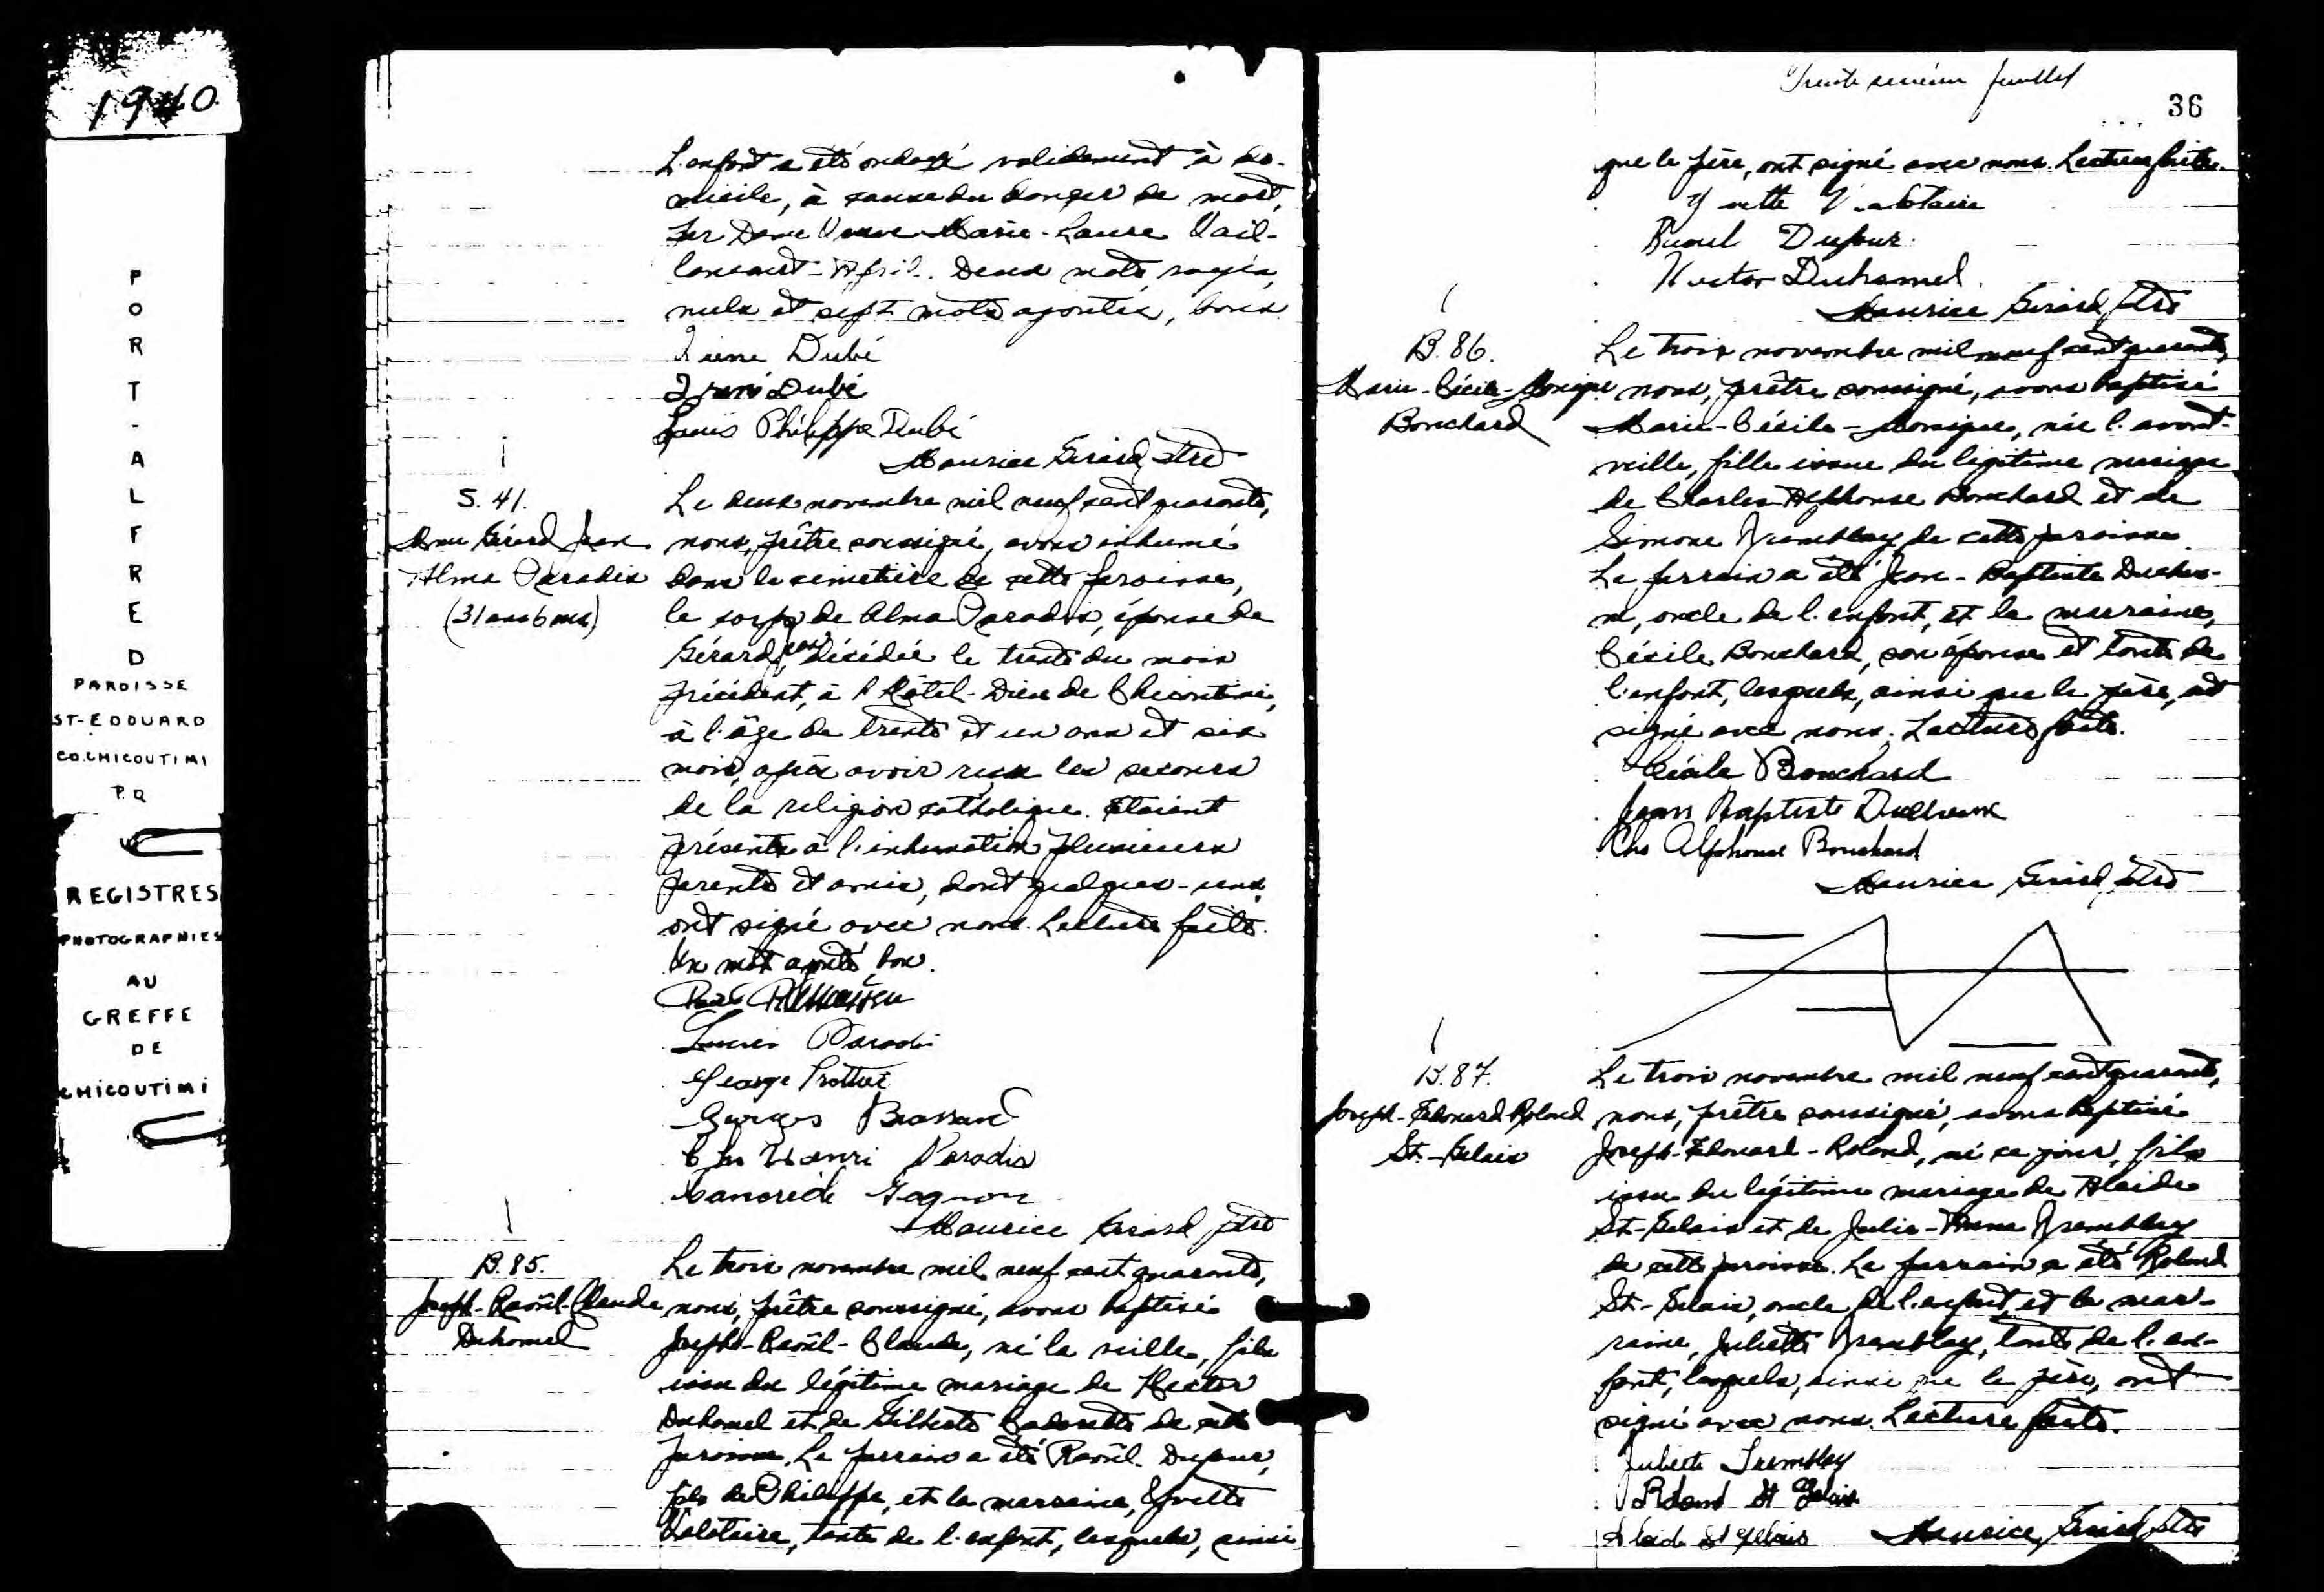 1940
PORT-ALFRED
PAROISSE
ST-EDOUARD
CO.CHICOUTIMI
P.Q
REGISTRES
PHOTOGRAPHIES
AU
GREFFE
DE
CHICOUTIMI
L'enfant a été ondoyé validement à do-
micile, à cause du danger de mort,
par Dame Veuve Marie-Laure Vail-
lancourt-April. Deux mots rayés,
nuls et sept mots ajoutés, bons
Dubé
Dubé
Louis Philippe Dubé
Maurice Girard, ptre
S. 41.
Dme Gérard Jean
Alma Paradis
(31 ans 6 ms)
Le deux novembre mil neuf cent quarante,
nous, prêtre soussigné, avons inhumé
dans le cimetière de cette paroisse,
le corps de Alma Paradis, épouse de
Gérard Jean, décédée le trente du mois
précédent, à l'Hôtel-Dieu de Chicoutimi,
à l'âge de trente et un ans et six
mois, après avoir reçu les secours
de la religion catholique. Étaient
présents à l'inhumation plusieurs
parents et amis, dont quelques-uns
ont signé avec nous. Lecture faite.
Un mot ajouté, bon.
Lucien Paradis
George Trottier
Georges Brassard
Chs Henri Paradis
Tancrède Gagnon
Maurice Girard ptre
B. 85.
Joseph-Raoûl-Claude
Duhamel
Le trois novembre mil neuf cent quarante,
nous, prêtre soussigné, avons baptisé
Joseph-Raoûl-Claude, né la veille, fils
issu du légitime mariage de Hector
Duhamel et de Gilberte Cadorette de cette
paroisse. Le parrain a été Raoûl Dufour,
fils de Philippe, et la marraine, Yvette
Valataire, tante de l'enfant, lesquels, ainsi
Trente sixième feuillet
36
que le père, ont signé avec nous. Lecture faite.
Yvette Valataire
Raoul Dufour
Hector Duhamel
Maurice Girard, ptre
B. 86.
Marie-Cécile-Monique
Bouchard
Le trois novembre mil neuf cent quarante,
nous, prêtre soussigné, avons baptisé
Marie-Cécile-Monique, née l'avant-
veille, fille issue du légitime mariage
de Charles-Alphonse Bouchard et de
Simone Tremblay de cette paroisse
Le parrain a été Jean-Baptiste Duches-
ne, oncle de l'enfant, et la marraine,
Cécile Bouchard, son épouse et tante de
l'enfant, lesquels, ainsi que le père, ont
signé avec nous. Lecture faite.
Cécile Bouchard
Jean Baptiste Duchesne
Chs Alphonse Bouchard
Maurice Girard, ptre
B. 87.
Joseph-Edouard-Roland
St-Gelais
Le trois novembre mil neuf cent quarante,
nous, prêtre soussigné, avons baptisé
Joseph-Edouard-Roland, né ce jour, fils
issu du légitime mariage de Alcide
St-Gelais et de Julie-Anna Tremblay
de cette paroisse. Le parrain a été Roland
St-Gelais, oncle de l'enfant, et la mar-
raine, Juliette Tremblay, tante de l'en-
fant, lesquels, ainsi que le père, ont
signé avec nous. Lecture faite.
Juliette Tremblay
Roland St Gelais
Alcide St Gelais
Maurice Girard ptre